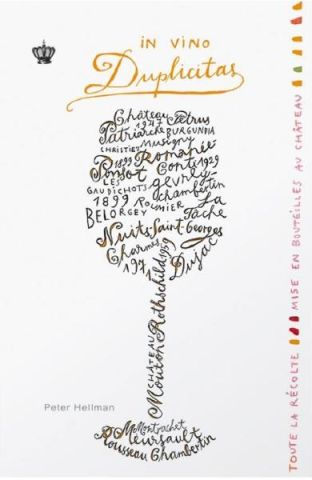 in vino
Duplicitas
Château Pétrus
1947
Patriarche BURGUNDIA
CHRISTIE'S Musigny
1899 Romanée
Ponsot Conti 1929
LES
GAUDICHOTS gevrey
chambertin
1899 ROUMIER La
BELORGEY Tâche
Nuits-Saint-Georges
Charmes
1971 Dujac
CHÂTEAU
Mouton Rothschild 1959
Montrachet
Meursault
Rousseau Chambertin
Peter Hellman
TOUTE LA RÉCOLTE MISE EN BOUTEILLES AU CHÂTEAU